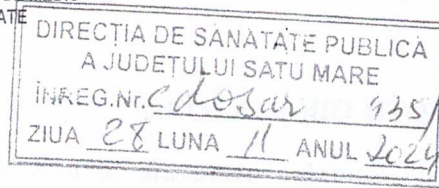 ATE
DIRECȚIA DE SĂNĂTATE PUBLICĂ
A JUDEȚULUI SATU MARE
ÎNREG.Nr. 935/
ZIUA 28 LUNA 11 ANUL 2024